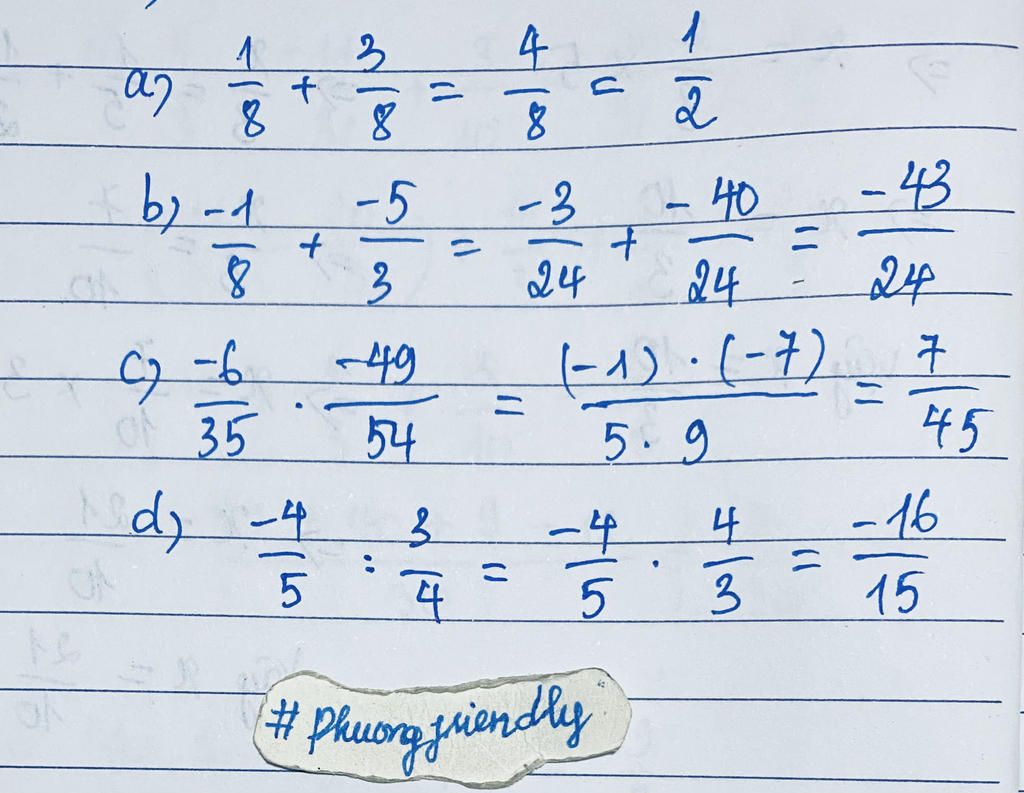 a) 1/8 + 3/8 = 4/8 = 1/2
b) -1/8 + -5/3 = -3/24 + -40/24 = -43/24
c) -6/35 . -49/54 = (-1) . (-7)/5 . 9 = 7/45
d) -4/5 : 3/4 = -4/5 . 4/3 = -16/15
# Phuongfriendly